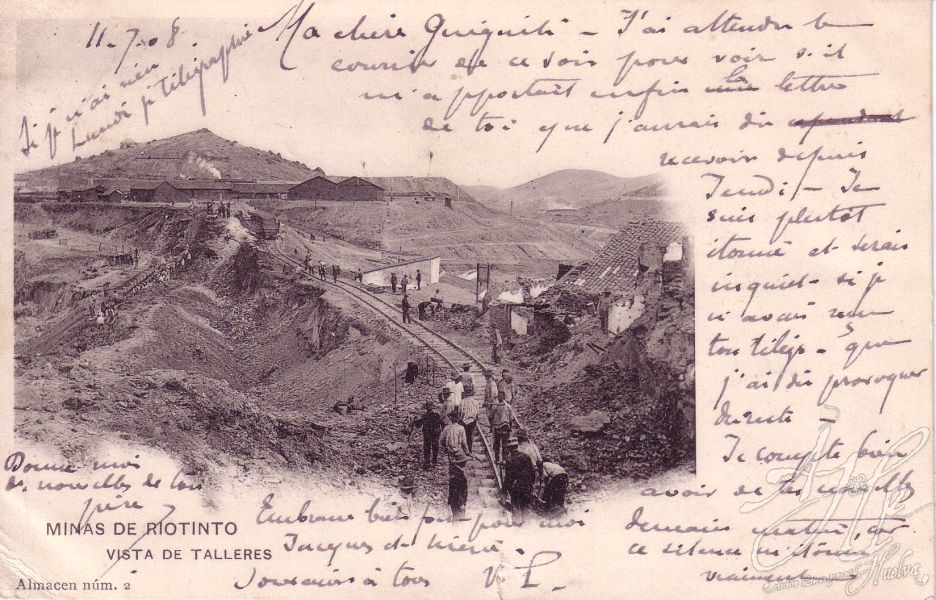 11-7-08.
Ma chère Quiquiti – J'ai attendu le
courrier de ce soir pour voir s'il
m'apportait enfin la lettre
de toi que j'aurais dû
recevoir depuis
Jeudi – Je
suis plutôt
étonné et serais
inquiet si je
n'avais reçu
ton télégr – que
j'ai dû provoquer
du reste –
Je compte bien
avoir de tes nouvelles
demain matin, car
ce silence m'étonne
vraiment
Si je n'ai rien
Lundi je télégraphie
Donne moi
des nouvelles de ton
père
Embrasse bien fort pour moi
Jacques et
Souvenirs à tous V. L.
MINAS DE RIOTINTO
VISTA DE TALLERES
Almacen núm. 2
Huelva